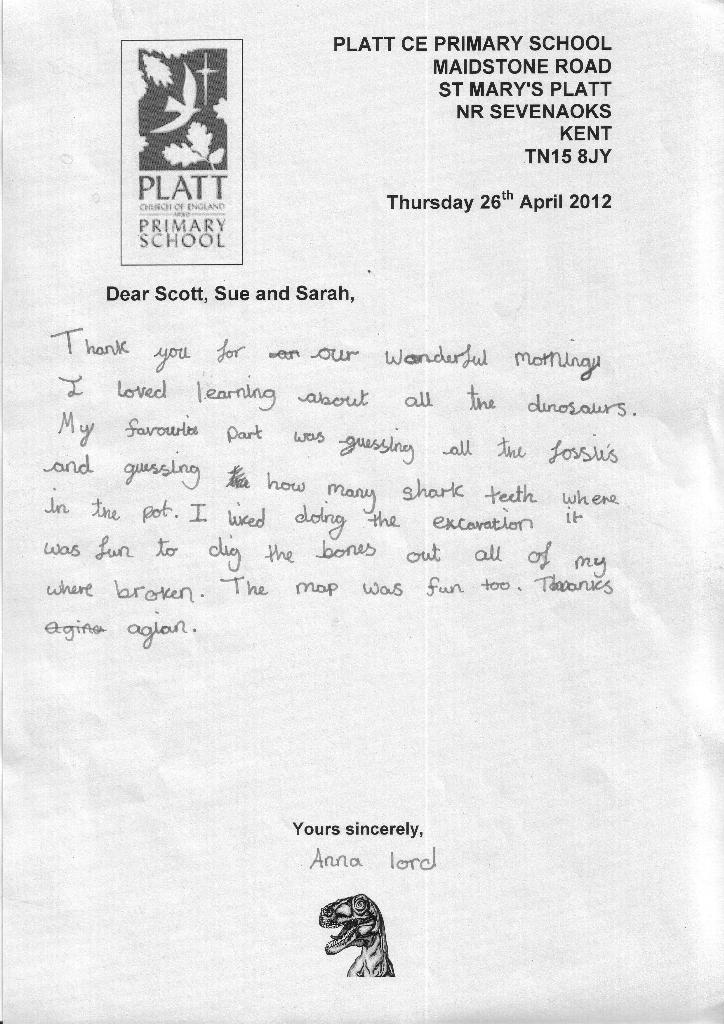 PLATT CE PRIMARY SCHOOL
MAIDSTONE ROAD
ST MARY'S PLATT
NR SEVENAOKS
KENT
TN15 8JY
Thursday 26th April 2012
PLATT
CHURCH OF ENGLAND
PRIMARY
SCHOOL
Dear Scott, Sue and Sarah,
Thank you for our wonderful morning
I loved learning about all the dinosaurs.
My favourite part was guessing all the fossils
and guessing how many shark teeth where
in the pot. I liked doing the excavation it
was fun to dig the bones out all of my
where broken. The map was fun too. Thanks
agian.
Yours sincerely,
Anna lord